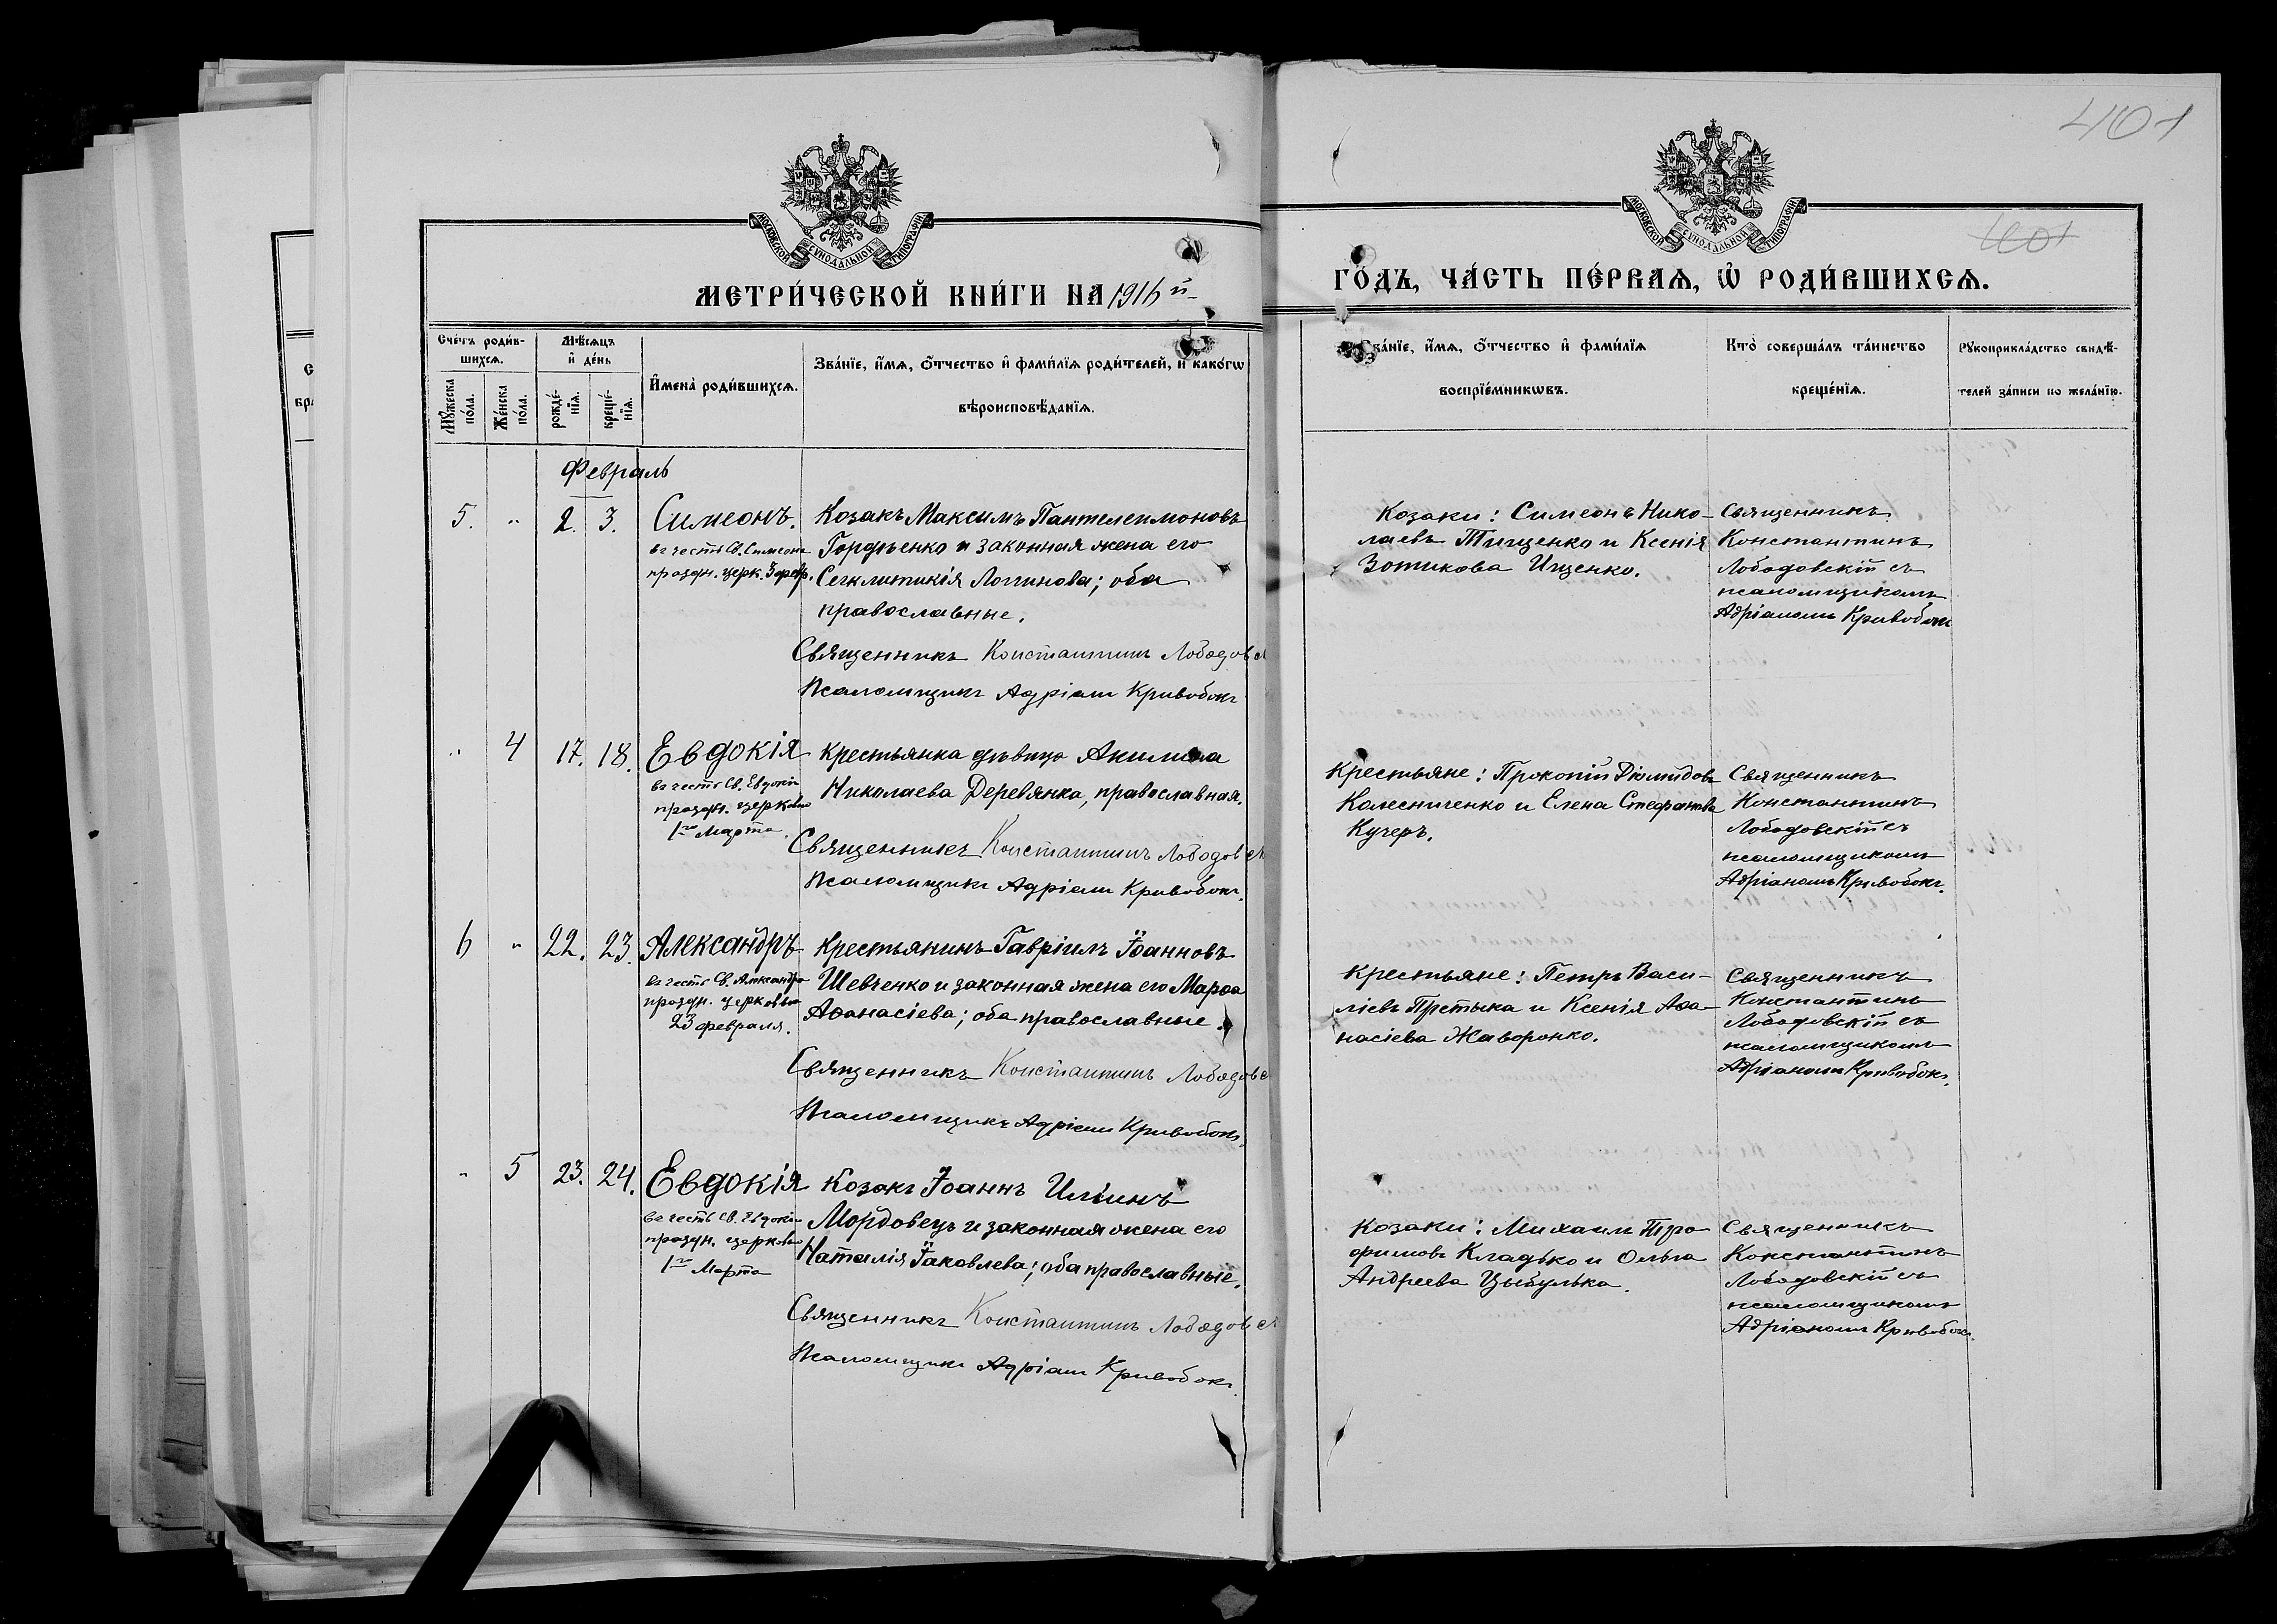 401
МОСКОВСКОЙ СѴНОДАЛЬНОЙ ТИПОГРАФИИ
МОСКОВСКОЙ СѴНОДАЛЬНОЙ ТИПОГРАФИИ
401
МЕТРИ́ЧЕСКОЙ КНИ́ГИ НА 1916 й
ГО́ДЪ, ЧА́СТЬ ПЕ́РВАѦ, Ѿ РОДИ́ВШИХСѦ.
Сче́тъ роди́в-
шихсѧ.
Мꙋ́жеска
по́ла.
Же́нска
по́ла.
Мѣ́сѧцъ
и҆ де́нь
рожде́-
нїѧ.
креще́-
нїѧ.
И҆мена̀ роди́вшихсѧ.
Зва́нїе, и҆́мѧ, ѻ҆́тчество и҆ фами́лїѧ роди́телей, и҆ како́гѡ
вѣроисповѣ́данїѧ.
Зва́нїе, и҆́мѧ, ѻ҆́тчество и҆ фами́лїѧ
воспрїе́мникѡвъ.
Кто̀ соверша́лъ та́инство
креще́нїѧ.
Рꙋкоприкла́дство свидѣ́-
телей за́писи по жела́нїю.
Февраль
5. " 2. 3. Симеонъ.
въ честь Св. Симеона
праздн. церк. 3 февр.
Козакъ Максимъ Пантелеимоновъ
Гордѣенко и законная жена его
Сегклитикія Логинова; оба
православные.
Священникъ Константинъ Лободовс
Псаломщикъ Адріанъ Кривобокъ
Козаки: Симеонъ Нико-
лаевъ Тищенко и Ксенія
Зотикова Ищенко.
Священникъ
Константинъ
Лободовскій съ
псаломщикомъ
Адріаномъ Кривобокъ
" 4 17. 18. Евдокія
въ честь Св. Евдокіи
праздн. церковью
1го Марта.
Крестьянка дѣвица Акилина
Николаева Деревянка, православная.
Священникъ Константинъ Лободовс
Псаломщикъ Адріанъ Кривобокъ.
Крестьяне: Прокопій Діомидовъ
Колесниченко и Елена Стефанова
Кучеръ.
Священникъ
Константинъ
Лободовскій съ
псаломщикомъ
Адріаномъ Кривобокъ.
6 " 22. 23. Александръ
въ честь Св. Александра
праздн. церковью
23 февраля.
Крестьянинъ Гавріилъ Іоанновъ
Шевченко и законная жена его Марѳа
Аѳанасіева; оба православные.
Священникъ Константинъ Лободовс
Псаломщикъ Адріанъ Кривобокъ.
Крестьяне: Петръ Васи-
ліевъ и Ксенія Аѳа-
насіева Жаворонко.
Священникъ
Константинъ
Лободовскій съ
псаломщикомъ
Адріаномъ Кривобокъ.
" 5 23. 24. Евдокія
въ честь Св. Евдокіи
праздн. церковью
1го Марта
Козакъ Іоаннъ Иліинъ
Мордовецъ и законная жена его
Наталія Іаковлева; оба православные.
Священникъ Константинъ Лободовс
Псаломщикъ Адріанъ Кривобокъ.
Козаки: Михаилъ Тро-
фимовъ Кладько и Ольга
Андреева Цыбулька.
Священникъ
Константинъ
Лободовскій съ
псаломщикомъ
Адріаномъ Кривобокъ.